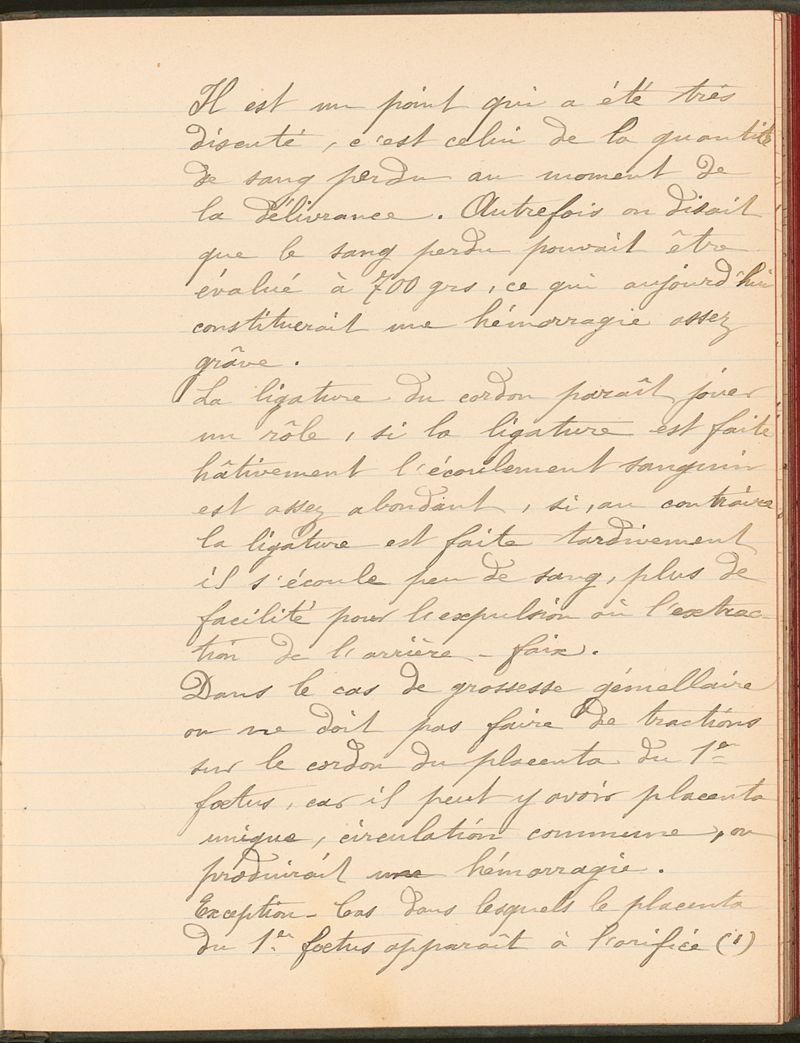 Il est un point qui a été très
discuté, c'est celui de la quantité
de sang perdu au moment de
la délivrance. Autrefois on disait
que le sang perdu pouvait être
évalué à 700 grs, ce qui aujourd'hui
constituerait une hémorragie assez
grâve.
La ligature du cordon paraît jouer
un rôle, si la ligature est faite
hâtivement l'écoulement sanguin
est assez abondant, si, au contraire
la ligature est faite tardivement
il s'écoule peu de sang, plus de
facilité pour l'expulsion où l'extrac-
tion de l'arrière-faix.
Dans le cas de grossesse gémellaire
on ne doit pas faire de tractions
sur le cordon du placenta du 1er
foetus, car il peut y avoir placenta
unique, circulation commune, on
produirait une hémorragie.
Exception - Cas dans lesquels le placenta
du 1er foetus apparaît à l'orifice (1)